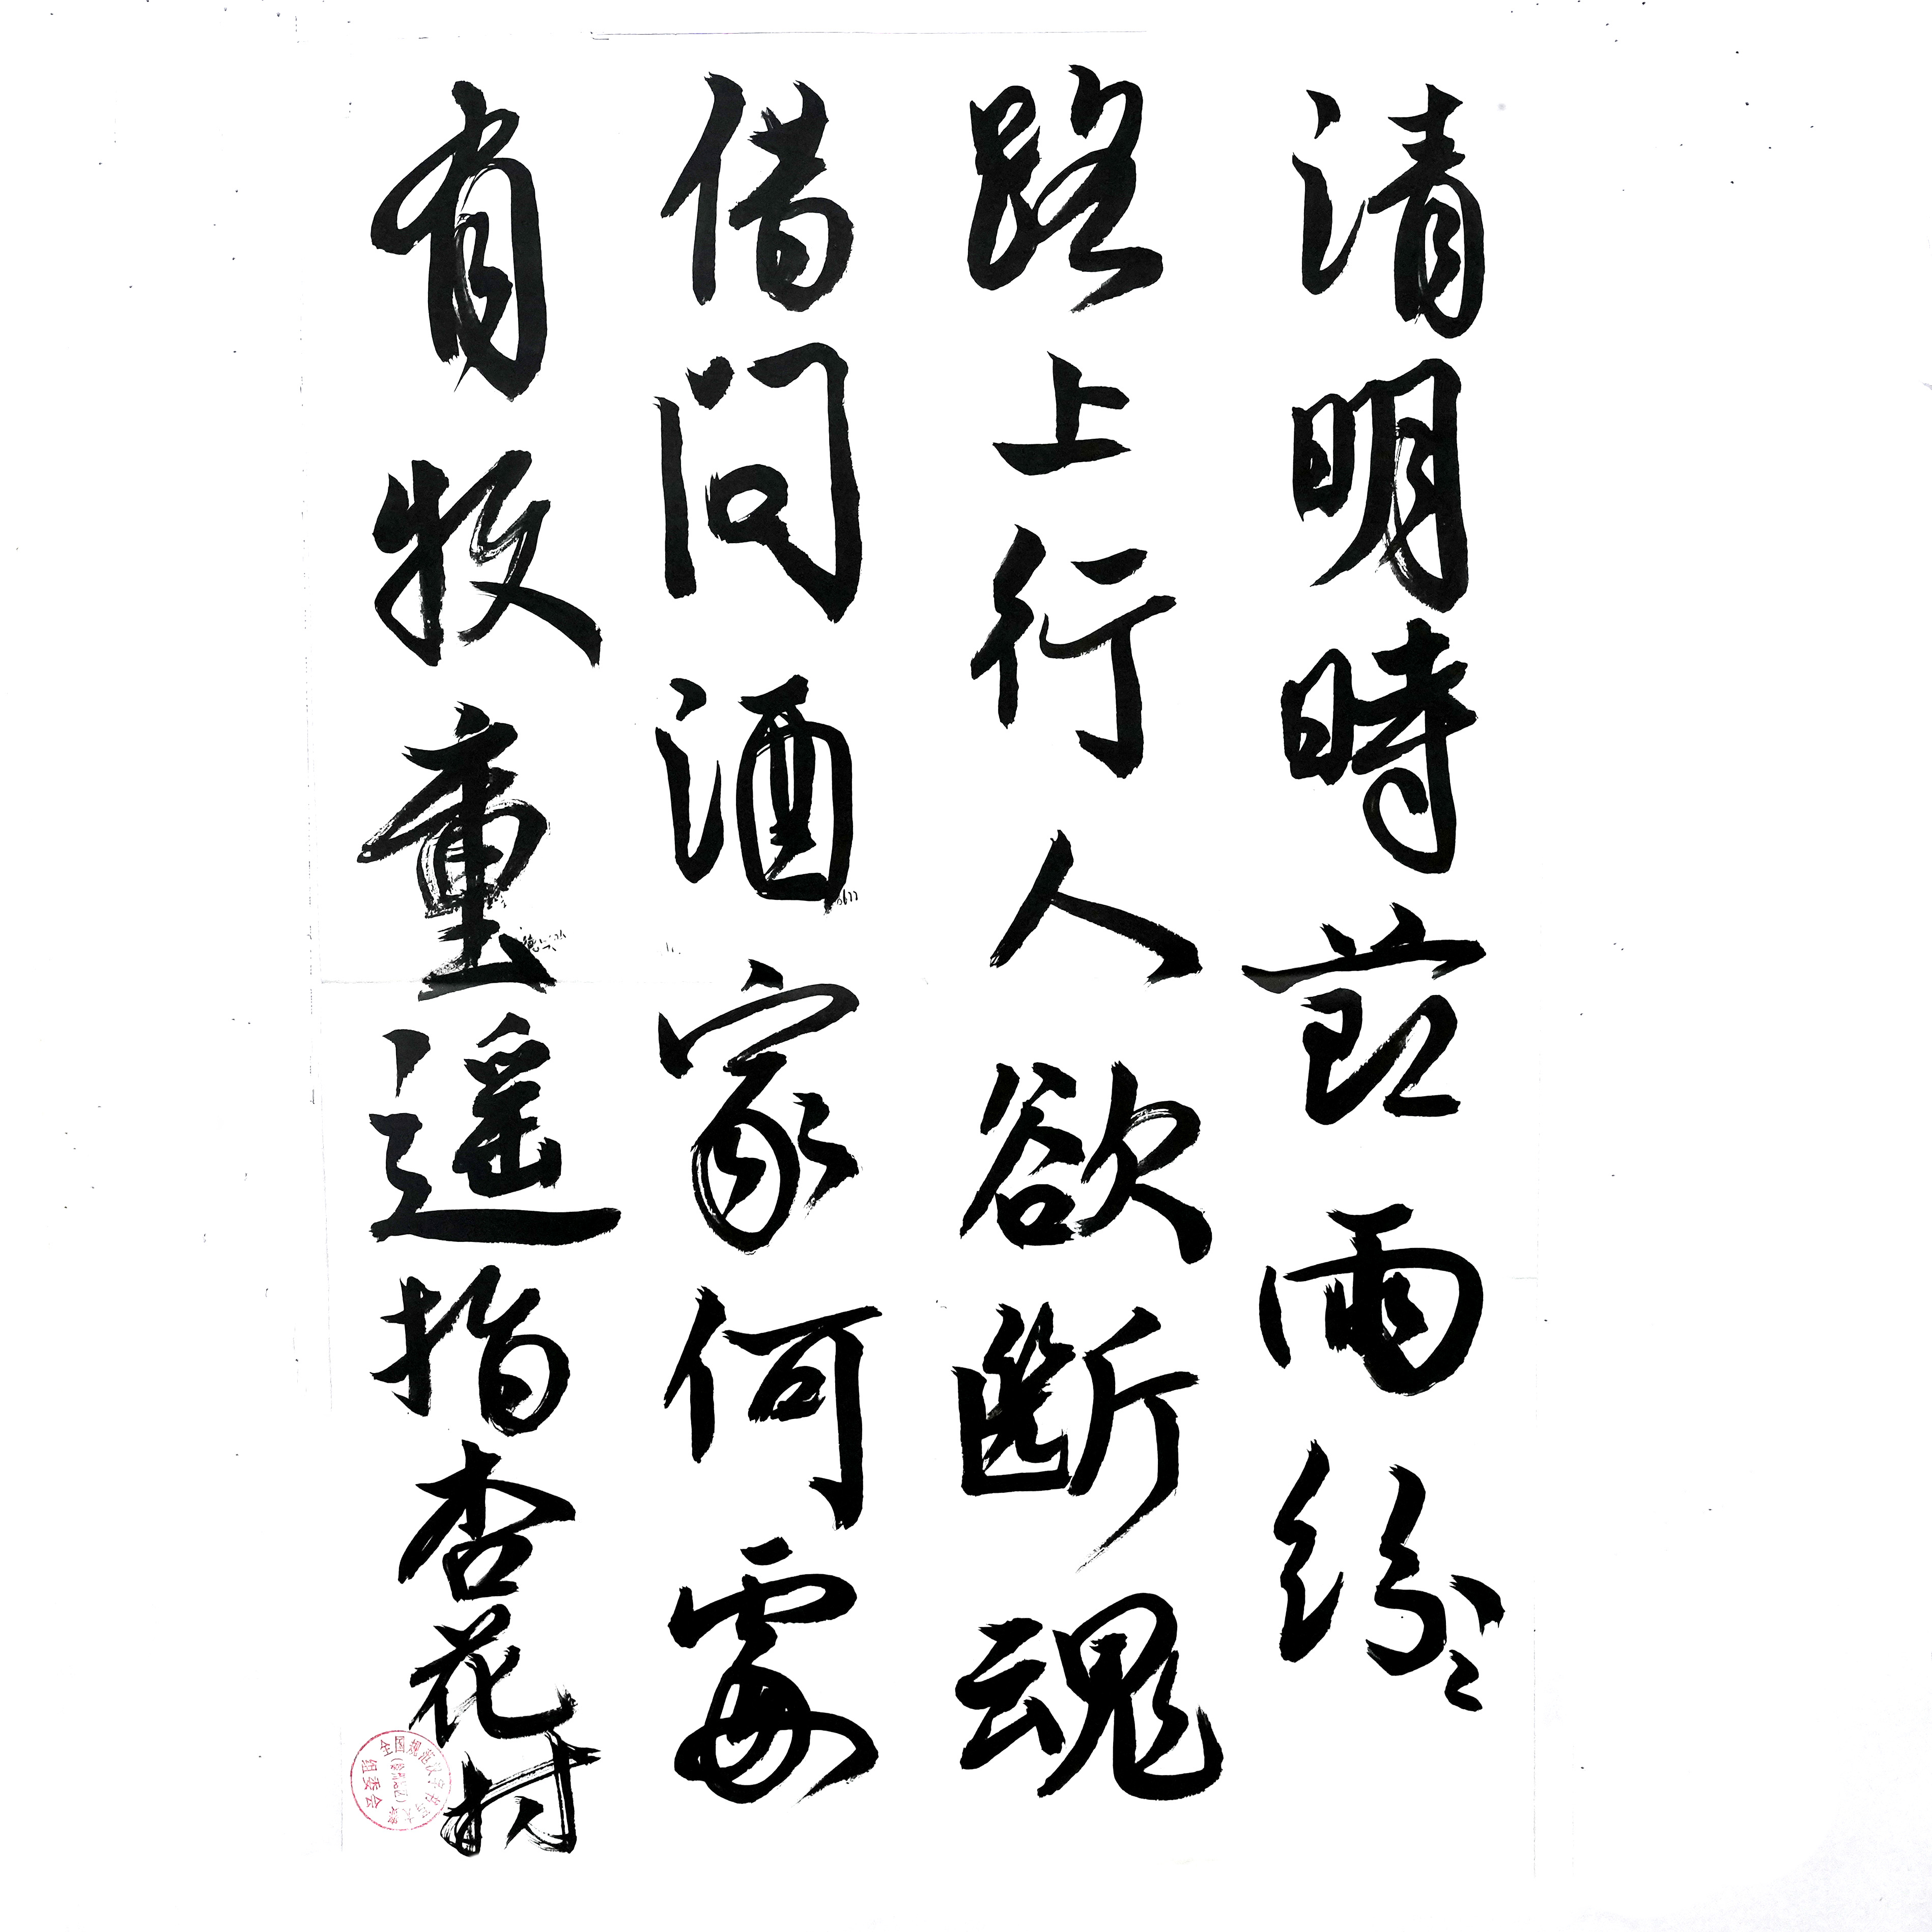 清明時節雨紛々
路上行人欲斷魂
借問酒家何處
有牧童遥指杏花村
全国规范汉字书写大赛
组委会